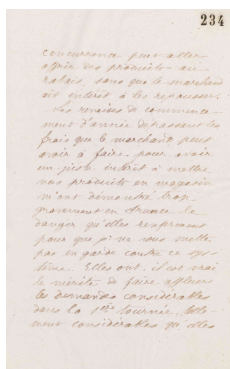 234
concurrence pour aller
offrir des produits au
rabais, sans que le marchand
ait intérêt à les repousser.
Les remises de commence-
ment d'année dépassant les
frais que le marchand peut
avoir à faire pour avoir
un juste intérêt à mettre
nos produits en magasin
m'ont démontré trop
en France le
danger qu'elles renferment
pour que je ne me mette
pas en garde contre ce sys-
tème. Elles ont, il est vrai
le mérite de faire affluer
les demandes considérables
dans la 1ère tournée, telle-
ment considérables qu'elles